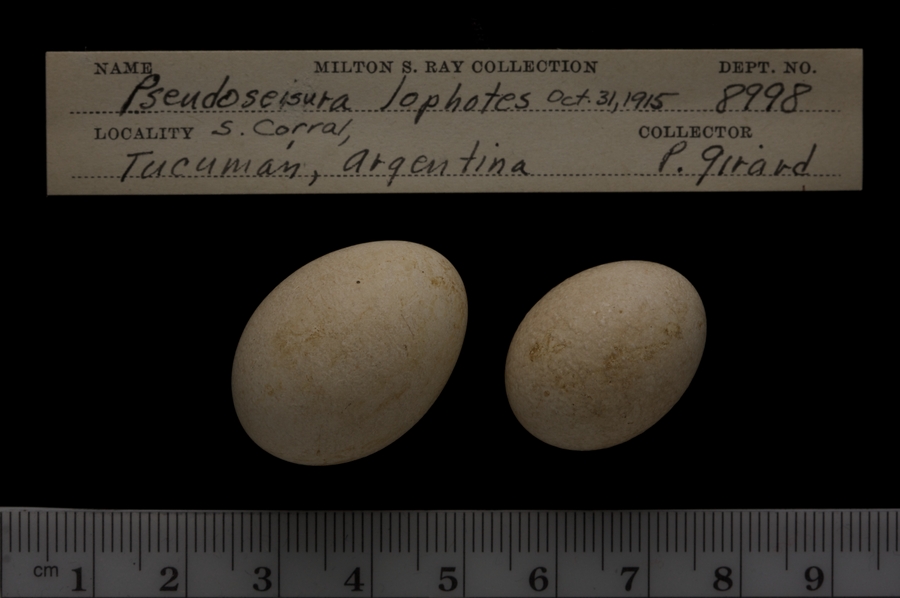 NAME MILTON S. RAY COLLECTION DEPT. NO.
Pseudoseisura lophotes Oct. 31, 1915 8998
LOCALITY S. Corral, COLLECTOR
Tucuman, Argentina P. Girard
cm 1 2 3 4 5 6 7 8 9